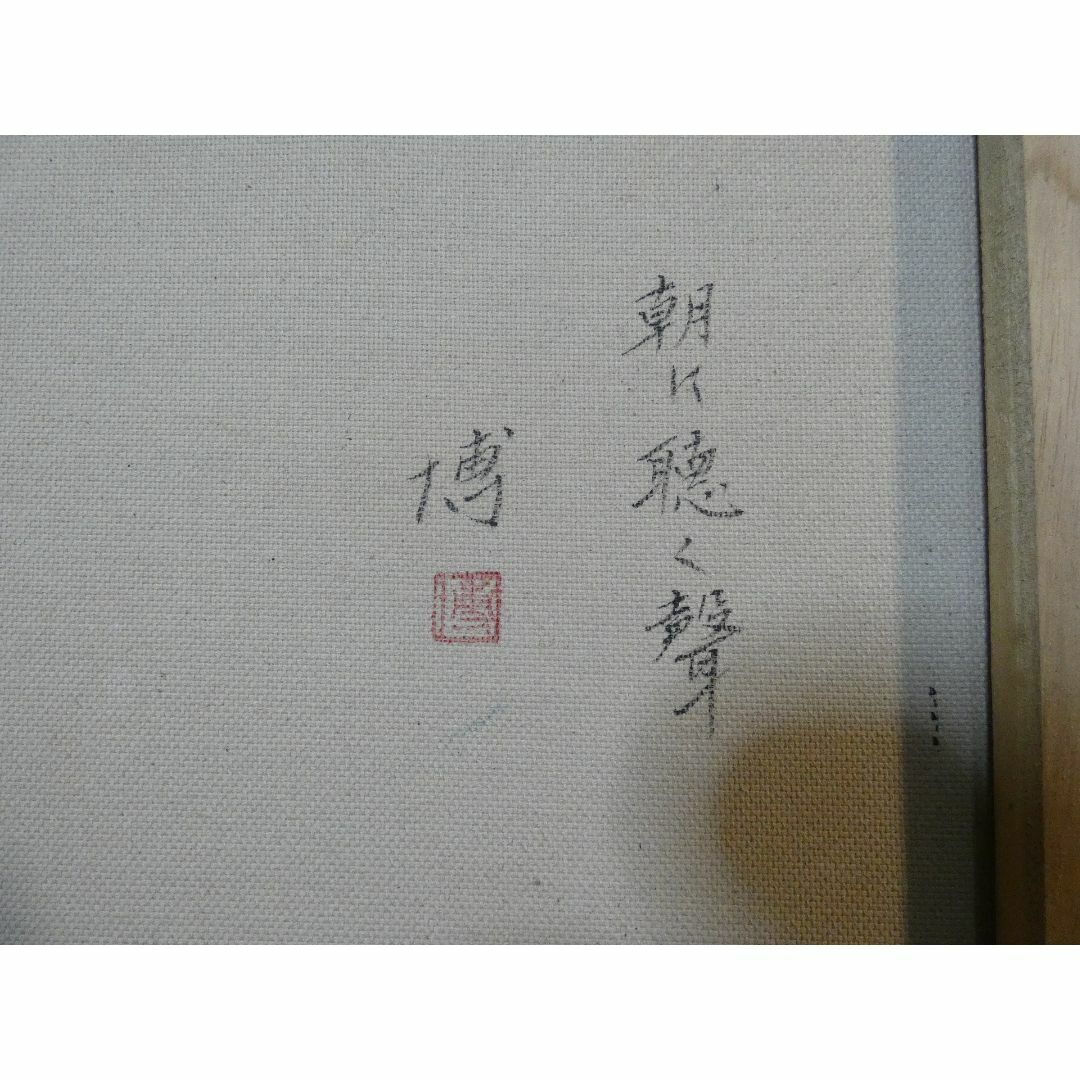 朝に聴く聲
博